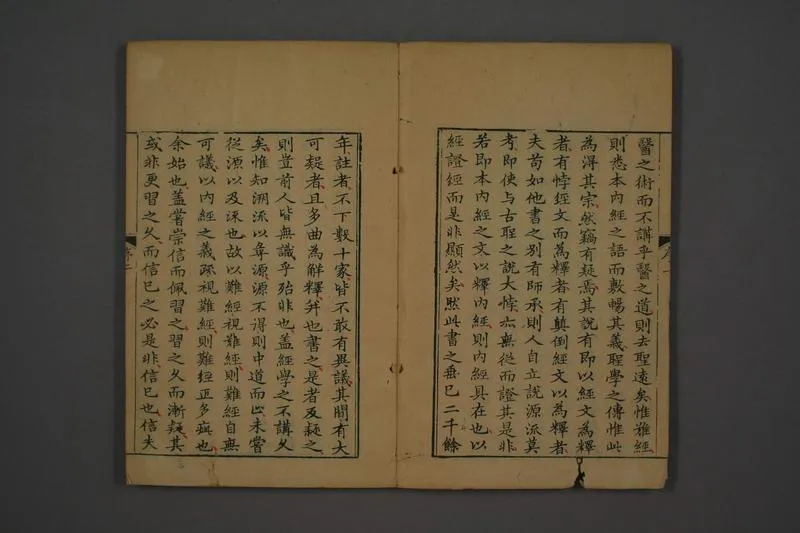 醫之術而不講乎醫之道則去聖遠矣惟難經
則悉本內經之語而敷暢其義聖學之傳惟此
為得其宗然竊有疑焉其說有即以經文為釋
者有悖經文而為釋者有顛倒經文以為釋者
夫苟如他書之別有師承則人自立說源派莫
考即使与古聖之說大悖亦無從而證其是非
若即本內經之文以釋內經則內經具在也以
經證經而是非顯然矣然此書之垂已二千餘
年註者不下數十家皆不敢有異議其間有大
可疑者且多曲為解釋并他書之是者反疑之
則豈前人皆無識乎殆非也蓋經學之不講久
矣惟知溯流以尋源源不得則中道而止未嘗
從源以及流也故以難經視難經則難經自無
可議以內經之義疏視難經則難經正多疵也
余始也蓋嘗崇信而佩習之習之久而漸疑其
或非更習之久而信已之必是非信已也信夫
序二